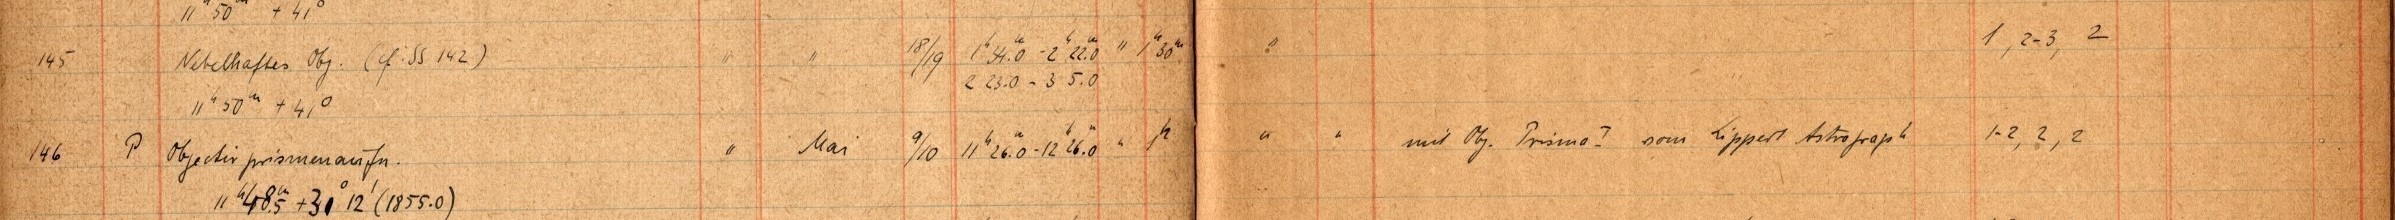 11ʰ 50ᵐ + 41°
145 Nebelhaftes Obj. (cf. SS 142) " " 18/19 1ʰ 34.0ᵐ - 2ʰ 22.0ᵐ " 1ʰ 30ᵐ " 1, 2-3, 2
2 23.0 - 3 5.0
11ʰ 50ᵐ + 41°
146 P Objectivprismenaufn. " Mai 9/10 11ʰ 26.0ᵐ - 12ʰ 26.0ᵐ " 1ʰ " " mit Obj. Prisma I vom Lippert Astrograph 1-2, 2, 2
11ʰ 48.5ᵐ + 31° 12' (1855.0)